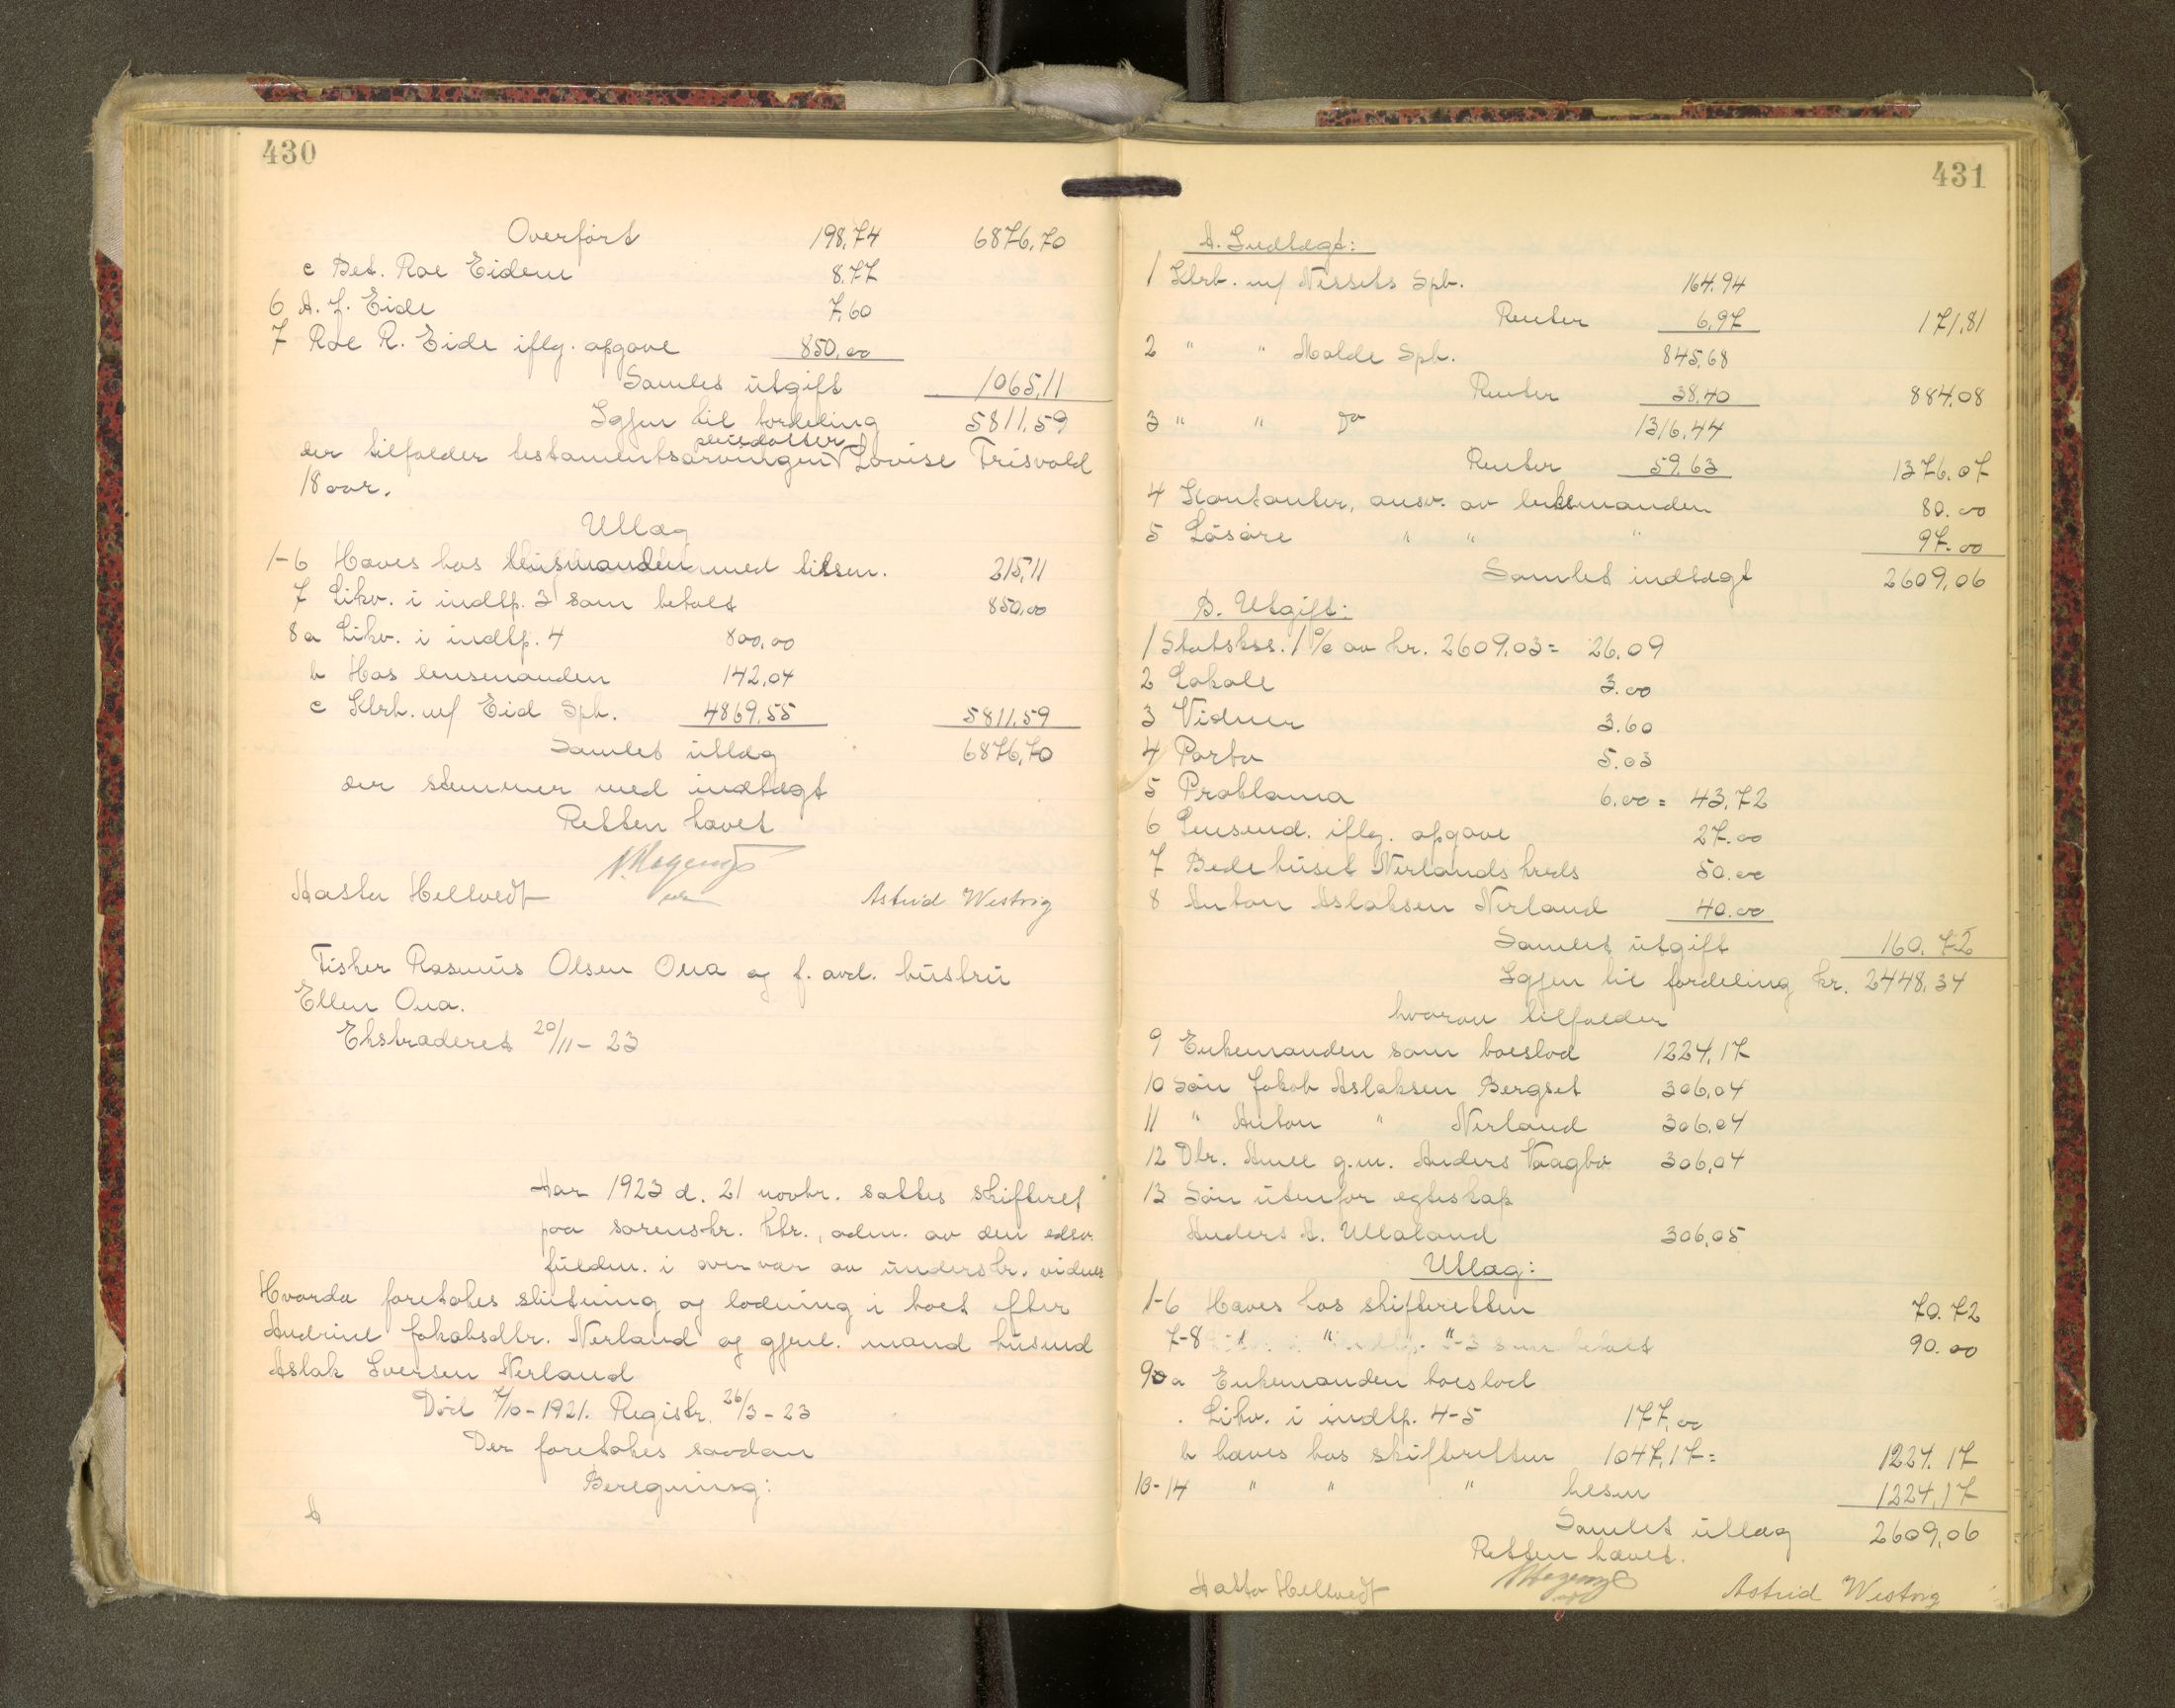 430
Overført 198.74 6876,70
c Bet. Roe Eidem 8.77
6 A. J. Eide 7,60
7 Roe R. Eide iflg. opgave 850,00
Samlet utgift 1065,11
Igjen til fordeling 5811,59
pleiedatter
der tilfalder testamentsarvingen Lovise Trisvold
18 aar.
Utlæg
1-6 Haves hos lensmanden med tilsen. 215,11
7 Likv. i indtp. 3 som betalt 850,00
8a Likv. i indtp. 4 800,00
b Hos lensmanden 142,04
c Klrb. m/ Eid Spb. 4869,55 5811,59
Samlet utlæg 6876,70
der stemmer med indtægt
Retten hævet
Aasta Helltvedt Astrid Westvig
Fisker Rasmus Olsen Ona og f. avd. hustru
Ellen Ona.
Ekstraderet 20/11 - 23
Aar 1923 d. 21 novbr. sattes skifteret
paa sorenskr. ktr., adm. av den edsv.
fuldm. i overvær av underskr. vidner
Hvorda foretokes slutning og lodning i boet efter
Andrine Jakobsdtr. Nerland og gjenl. mand husmd
Aslak Iversen Nerland
Død 7/10 - 1921. Registr. 26/3 - 23
Der foretokes saadan
Beregning:
A
431
A. Indtægt:
1 Klrb. m/ Nessets Spb. 164.94
Renter 6,97 171,81
2 " " Molde Spb. 845,68
Renter 38,40 884,08
3 " " Do 1316,44
Renter 59,63 1376,07
4 Kontanter, ansv. av lensmanden 80.00
5 Løsøre " " " 97.00
Samlet indtægt 2609,06
B. Utgift:
1 Statskss. 1% av kr. 2609,03 = 26.09
2 Lokale 3.00
3 Vidner 3.60
4 Porto 5.03
5 Proklama 6.00 = 43,72
6 Lensmd. iflg. opgave 27.00
7 Bedehuset Nerlands kreds 50.00
8 Anton Aslaksen Nerland 40.00
Samlet utgift 160.72
Igjen til fordeling kr. 2448,34
hvorav tilfalder
9 Enkemanden som boeslod 1224,17
10 Søn Jakob Aslaksen Bergset 306,04
11 " Anton " Nerland 306,04
12 Dtr. Anne g.m. Anders Vaagbø 306,04
13 Søn utenfor egteskap
Anders A. Ullaland 306,05
Utlæg:
1-6 Haves hos skifteretten 70.72
7-8 " " -3 som betalt 90.00
9 a Enkemanden boeslod
. Likv. i indtp. 4-5 177,00
b haves hos skifteretten 1047,17 = 1224.17
10-14 " " " tilsen 1224,17
Samlet utlæg 2609,06
Retten hævet.
Aasta Helltvedt Astrid Westvig